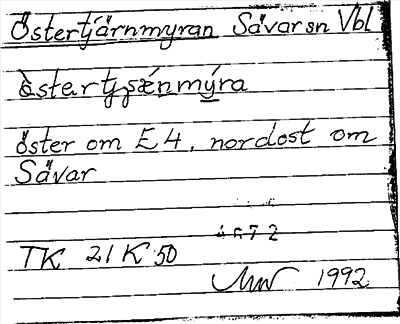 Östertjärnmyran Sävar sn Vbl
öster om E4, nordost om
Sävar
4672
TK 21K 50
1992